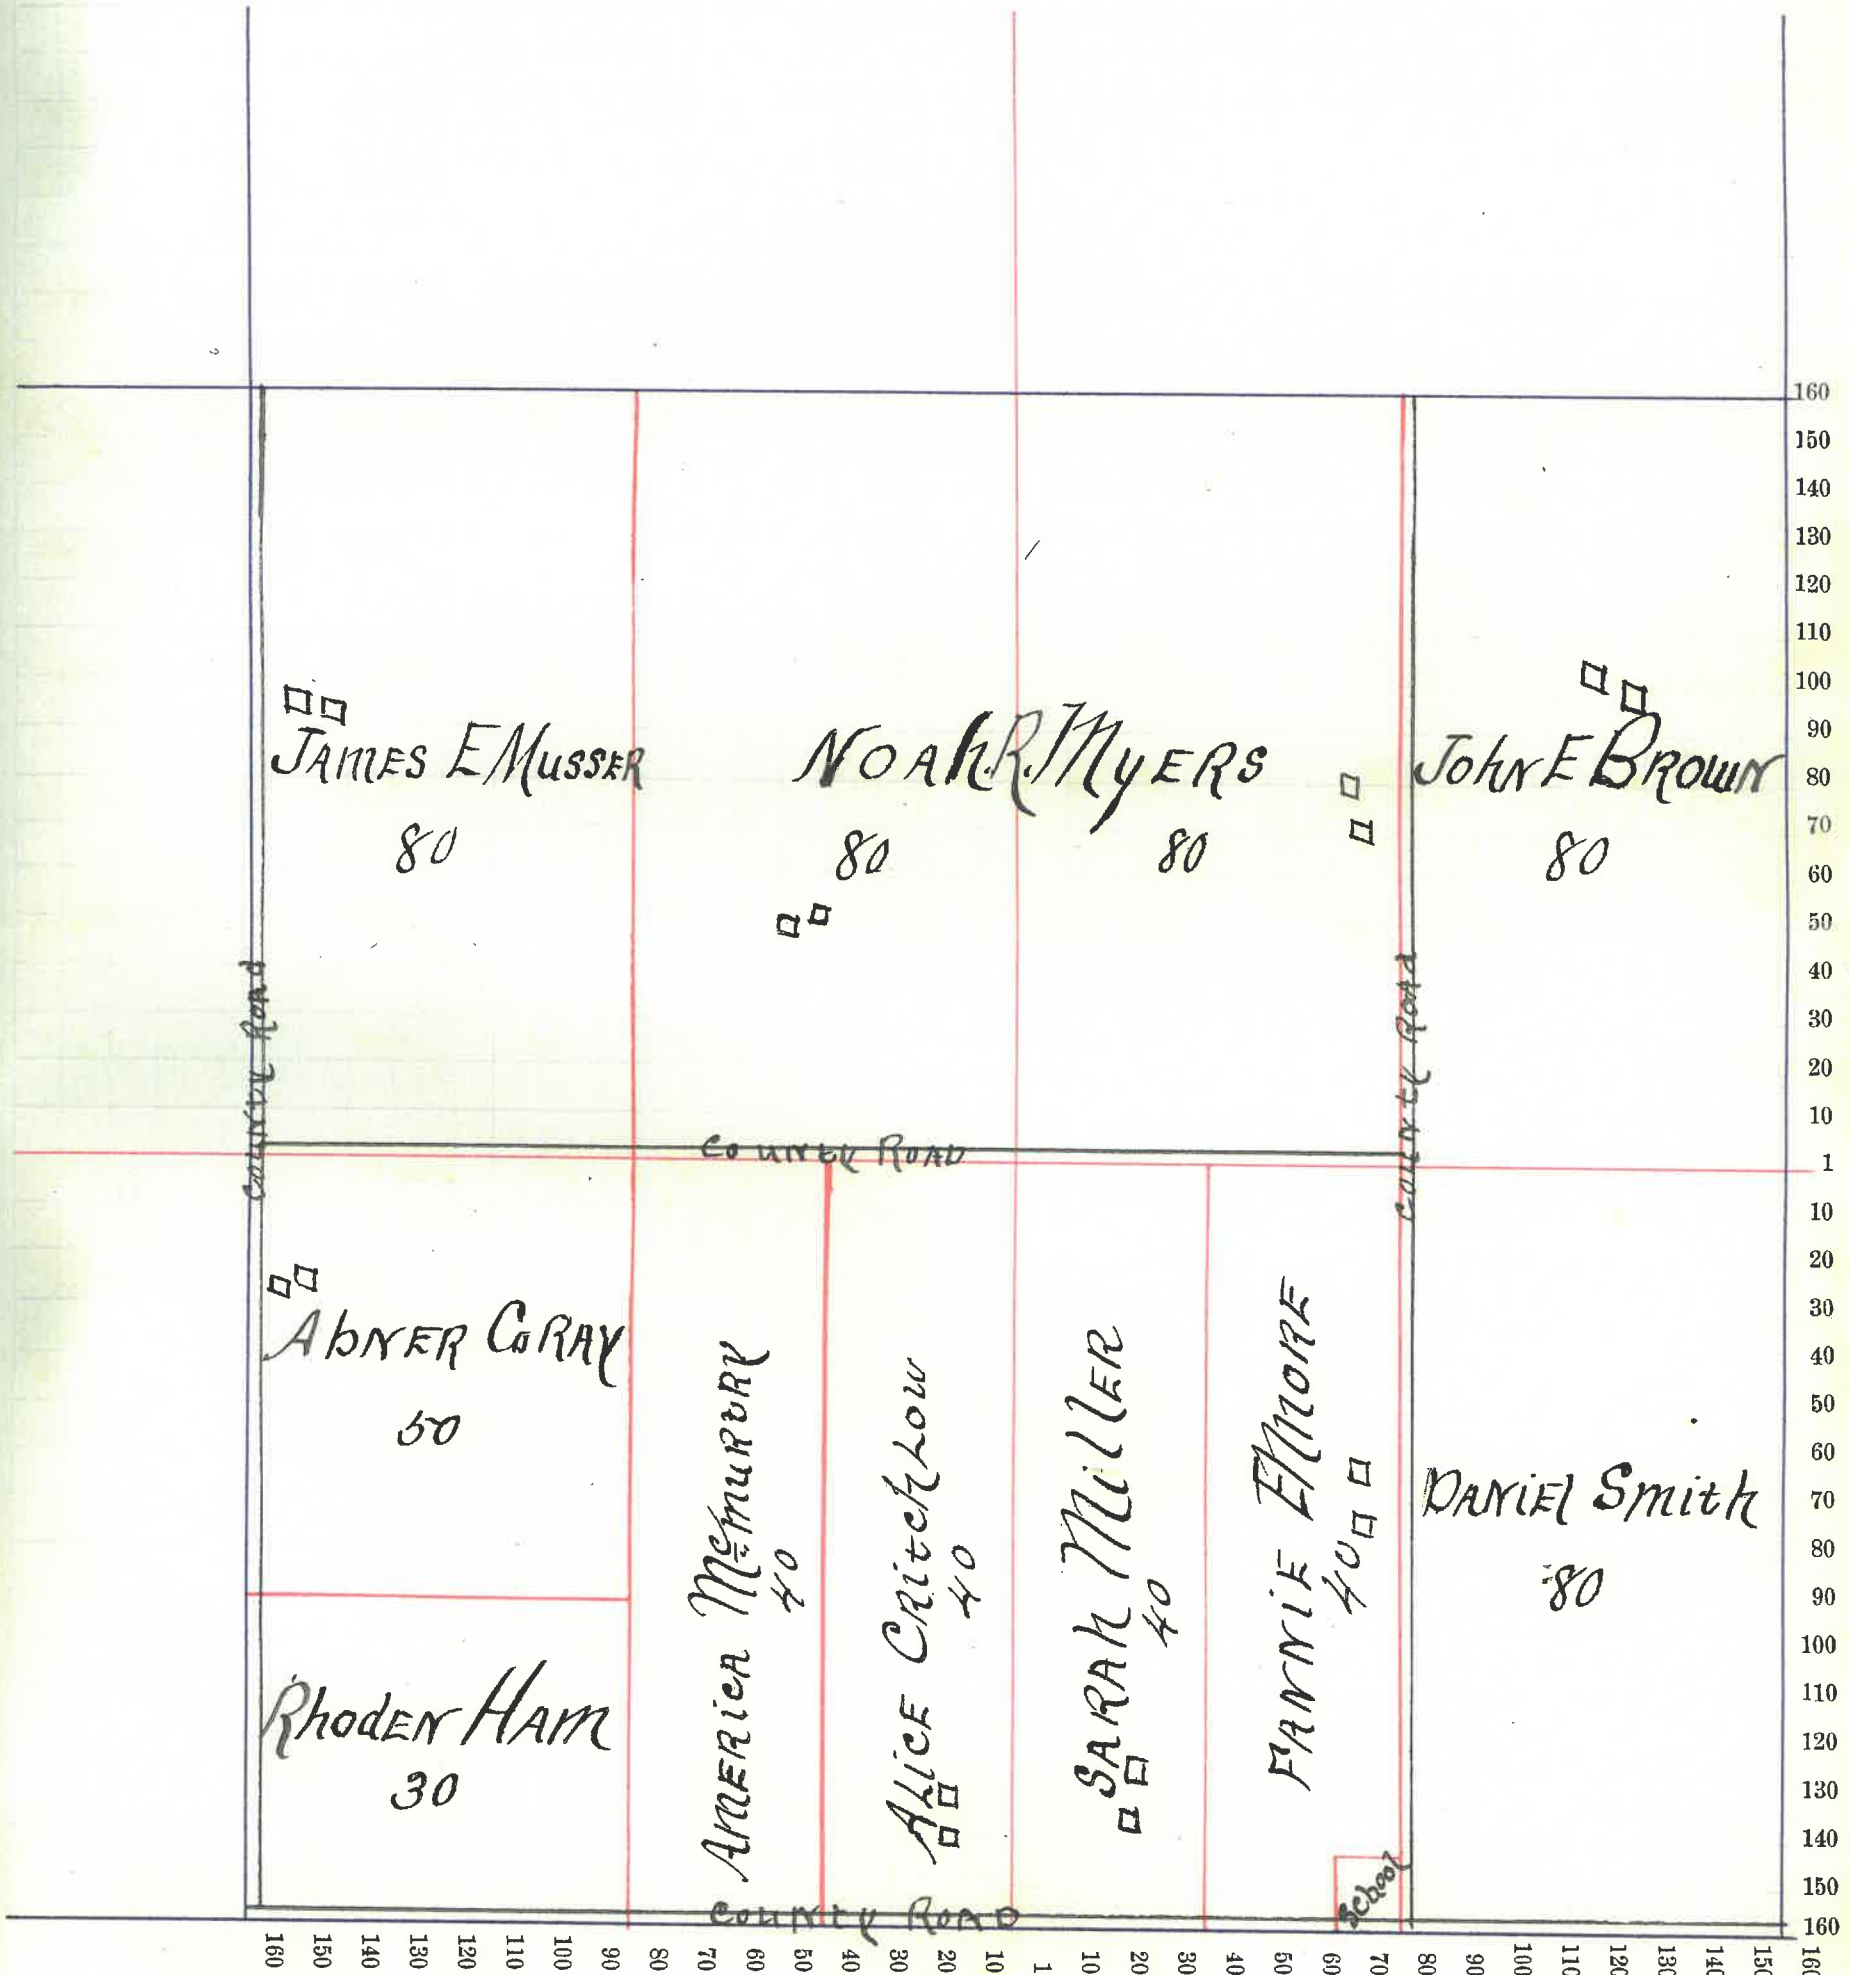 JAMES E MUSSER
80
NOAh.R.MyERS
80 80
JohN E BROWN
80
COUNTY ROAD
COUNTY ROAD
COUNTY ROAD
AbNER CoRAY
50
RhodEN HAM
30
AMERICA McMURTRY
40
ALICE CRitchLow
40
SARAh MillER
40
FANNiE EMORE
40
DANiEl Smith
80
School
COUNTY ROAD
160
150
140
130
120
110
100
90
80
70
60
50
40
30
20
10
1
10
20
30
40
50
60
70
80
90
100
110
120
130
140
150
160
160 150 140 130 120 110 100 90 80 70 60 50 40 30 20 10 1 10 20 30 40 50 60 70 80 90 100 110 120 130 140 150 160